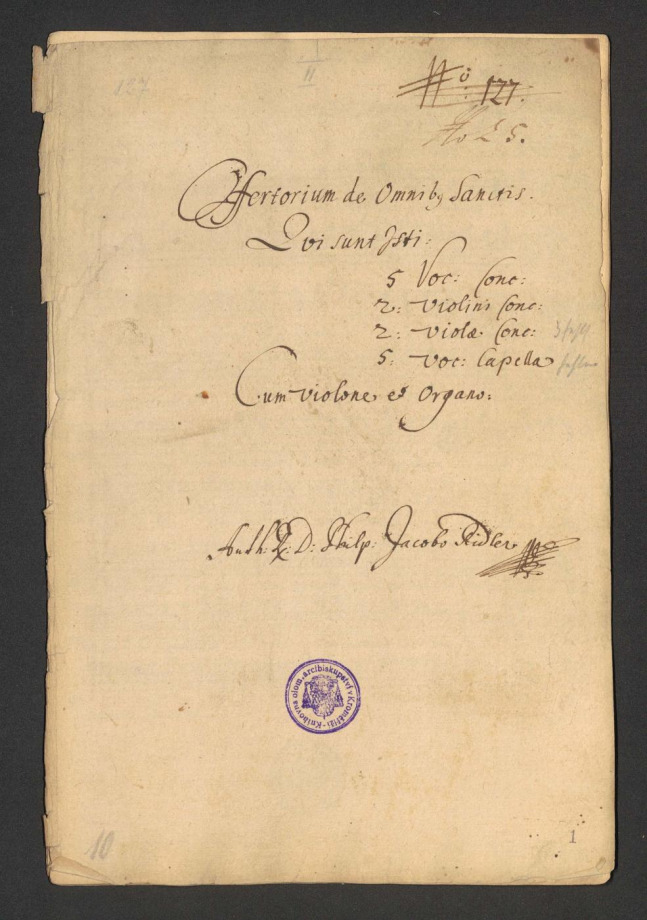 187
II
No 127.
No 25.
Offertorium de Omnibq Sanctis.
Qvi sunt Isti:
5 Voc: Conc:
2: Violini Conc:
2: Violæ Conc:
5: Voc: Capella
Cum Violone et Organo:
Auth: R: D: Philp: Jacobo Ridler
Knihovna olom. arcibiskupství v Kroměříži
10
1